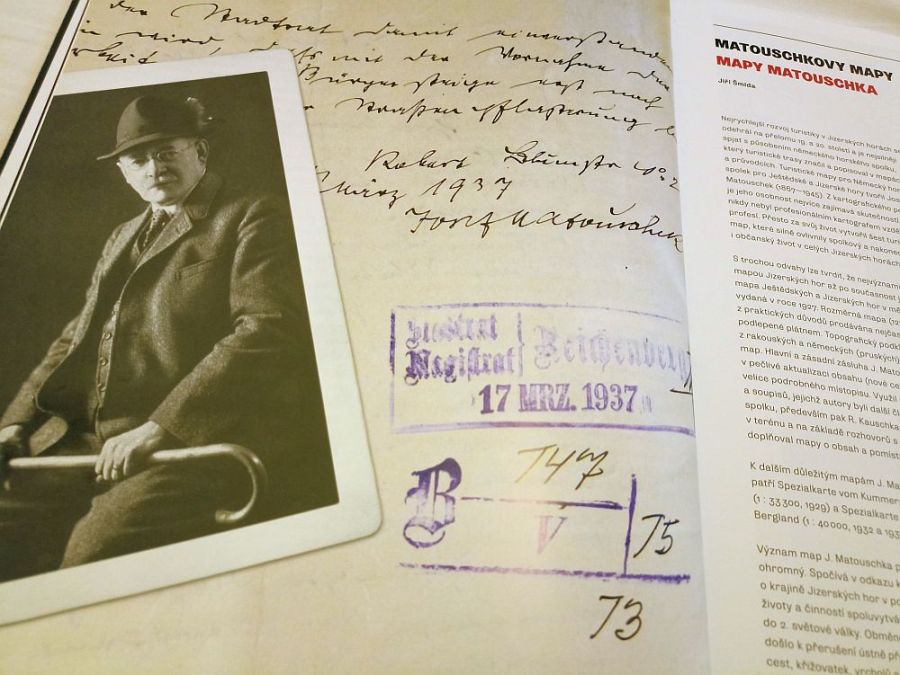 der Stadtrat damit einverstanden
wird
mit der Vornahme der
Bürgersteige erst nach
Straßenpflasterung
Robert
März 1937
Josef Matouschek
Stadtrat
Magistrat
Reichenberg
17 MRZ. 1937
B
747
V
75
73
MATOUSCHKOVY MAPY
MAPY MATOUSCHKA
Jiří Šmída
Nejrychlejší rozvoj turistiky v Jizerských horách se
odehrál na přelomu 19. a 20. století a je nejsilněji
spjat s působením německého horského spolku,
který turistické trasy značil a popisoval v mapách
a průvodcích. Turistické mapy pro Německý hor
spolek pro Ještědské a Jizerské hory tvořil Jos
Matouschek (1867–1945). Z kartografického po
je jeho osobnost nejvíce zajímavá skutečností
nikdy nebyl profesionálním kartografem vzdě
profesí. Přesto za svůj život vytvořil šest turis
map, které silně ovlivnily spolkový a nakonec
i občanský život v celých Jizerských horách
S trochou odvahy lze tvrdit, že nejvýznamn
mapou Jizerských hor až po současnost j
mapa Ještědských a Jizerských hor v mě
vydaná v roce 1927. Rozměrná mapa (12
z praktických důvodů prodávána nejčas
podlepené plátnem. Topografický podkl
z rakouských a německých (pruských)
map. Hlavní a zásadní zásluha J. Mato
v pečlivé aktualizaci obsahu (nové ce
velice podrobného místopisu. Využil
a soupisů, jejichž autory byli další čl
spolku, především pak R. Kauschka
v terénu a na základě rozhovorů s
doplňoval mapy o obsah a pomíst
K dalším důležitým mapám J. Ma
patří Spezialkarte vom Kummer
(1 : 33 300, 1929) a Spezialkarte
Bergland (1 : 40 000, 1932 a 193
Význam map J. Matouschka p
ohromný. Spočívá v odkazu k
o krajině Jizerských hor v po
životy a činností spoluvytvá
do 2. světové války. Obměn
došlo k přerušení ústně př
cest, křižovatek, vrcholů s